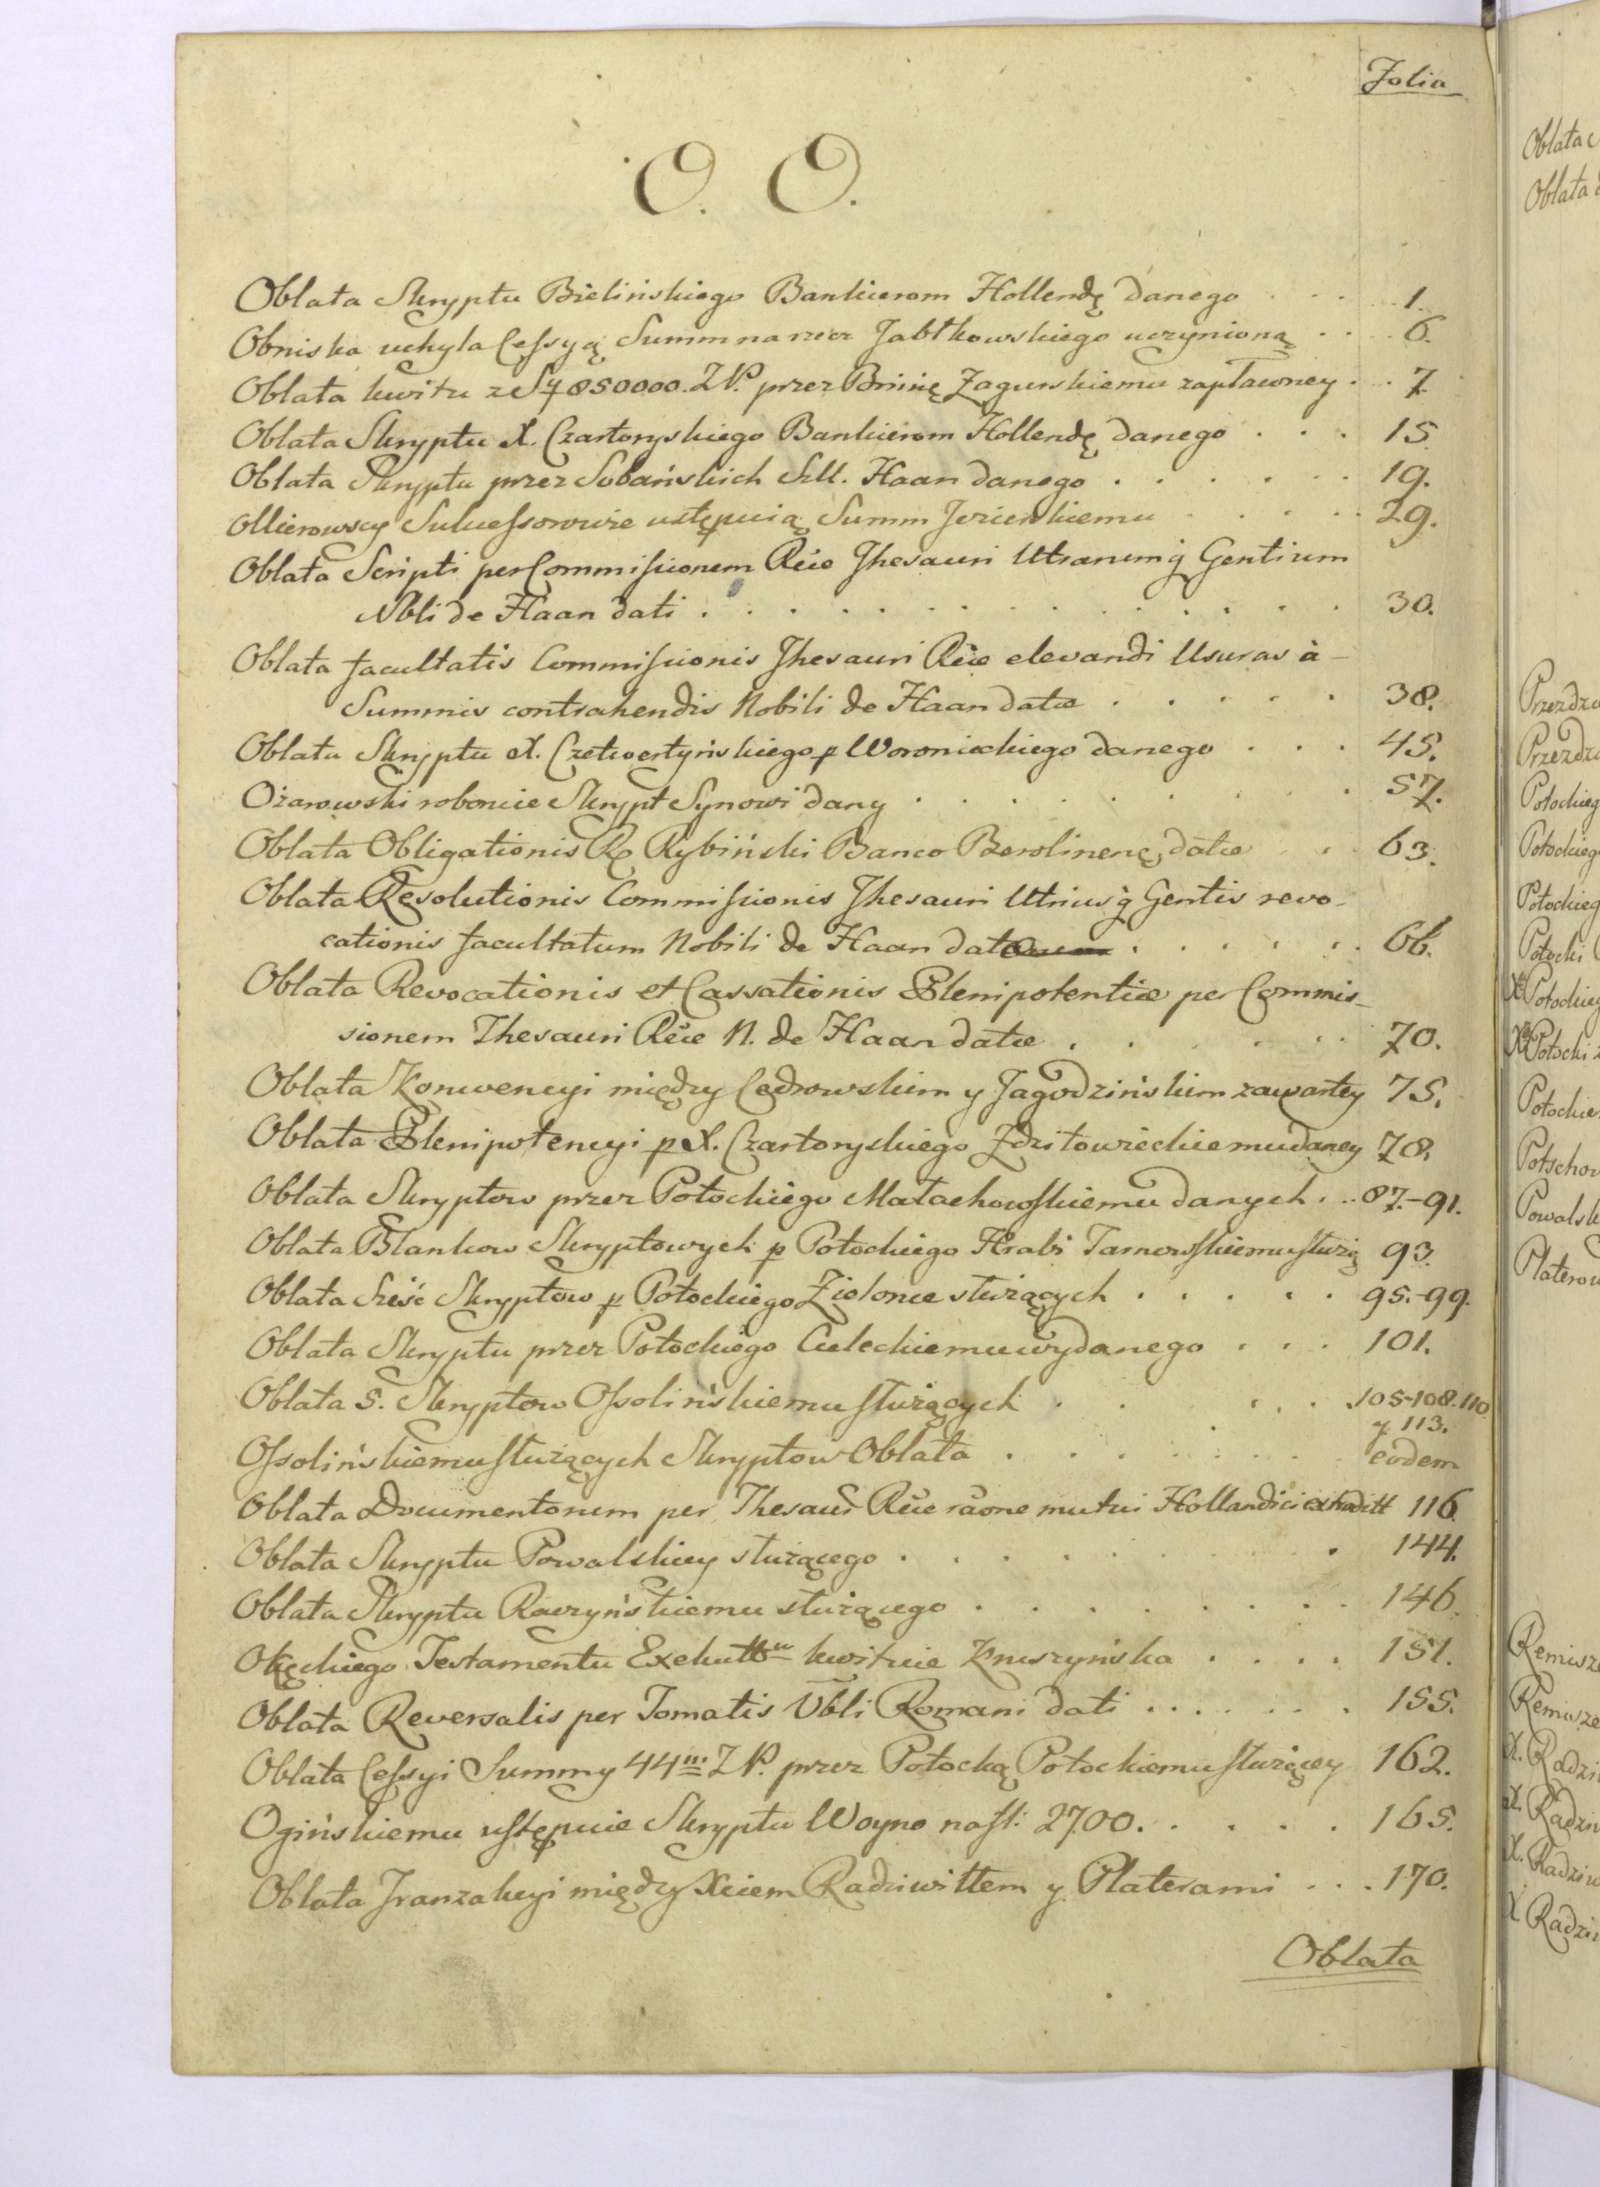 Folia
O. O.
Oblata Skryptu Bielińskiego Bankierom Hollendę danego . . . 1.
Obniska uchyla Cessyą Summ na rzecz Jabłkowskiego uczynioną . . . 6.
Oblata kwitu z 850000. ZP. przez Zagurskiemu zapławney . . 7.
Oblata Skryptu X. Czartoryskiego Bankierom Hollendę danego . . . 15
Oblata Skryptu przez Sobańskich Szll. Haan danego . . . . . . 19.
Ollierowscy Sukcessorowie ustępuią Summ Jezierskiemu . . . . . 29.
Oblata Scripti per Commissionem Rčie Thesauri Utrarumq̃ Gentium
Nbli de Haan dati . . . . . . . . . . . . . . 30.
Oblata facultatis Commissionis Thesauri Rčie elevandi Usuras à
Summis contrahendis Nobili de Haan datæ . . . . . . 38.
Oblata Skryptu X. Czetwertyńskiego p Woronieckiego danego . . . 45.
Ożarowski roborcie Skrypt Synowi dany . . . . . . . . . . 57.
Oblata Obligationis Rybiński Banco Berolinenę datæ . . 63.
Oblata Resolutionis Commissionis Thesauri Utriusq̃ Gentis revo-
cationis facultatum Nobili de Haan dat . . . . . . 66.
Oblata Revocationis et Cassationis Plenipotentiæ per Commis-
sionem Thesauri Rčie N. de Haan datæ . . . . . . . 70.
Oblata Konwencyi między Cedrowskim y Jagodzińskim zawartey 75.
Oblata Plenipotencyi p X. Czartoryskiego Zdzitowieckiemu daney 78.
Oblata Skryptow przez Potockiego Małachowskiemu danych . .. 87.-91.
Oblata Blankow Skryptowych p Potockiego Hrabi Tarnowskiemu służą 93.
Oblata Sześć Skryptow p Potockiego Ziolonce służących . . . . . 95.-99.
Oblata Skryptu przez Potockiego Culeckiemu wydanego . . . 101.
Oblata 5. Skryptow Ossolińskiemu służących . . . . . 105-108. 110
y 113.
Ossolińskiemu służących Skryptow Oblata . . . . . . . . eodem
Oblata Documentorum per Thesaur Rčie rãone mutui Hollandici extraditt 116.
Oblata Skryptu Powalskiey służącego . . . . . . . . . . 144.
Oblata Skryptu Raczyńskiemu służącego . . . . . . . . . 146.
Okęckiego Testamentu Exekutt kwituie Kruszyńska . . . . 151.
Oblata Reversalis per Tomatis Ubli Romani dati . . . . . . . 155.
Oblata Cessyi Summy 44m. ZP. przez Potocką Potockiemu służącey 162.
Ogińskiemu ustępuie Skryptu Woyno na fl: 2700. . . . . . 165.
Oblata Tranzakcyi między Xciem Radziwiłłem y Platerami . . . 170.
Oblata
Przezdz
Potockieg
Potockieg
Potockieg
Potocki
Potockieg
Potocki
Potockie
Potschow
Powalsk
Platerow
Remisze
Remisze
X. Radzi
X. Radzi
X. Radziw
X Radzi